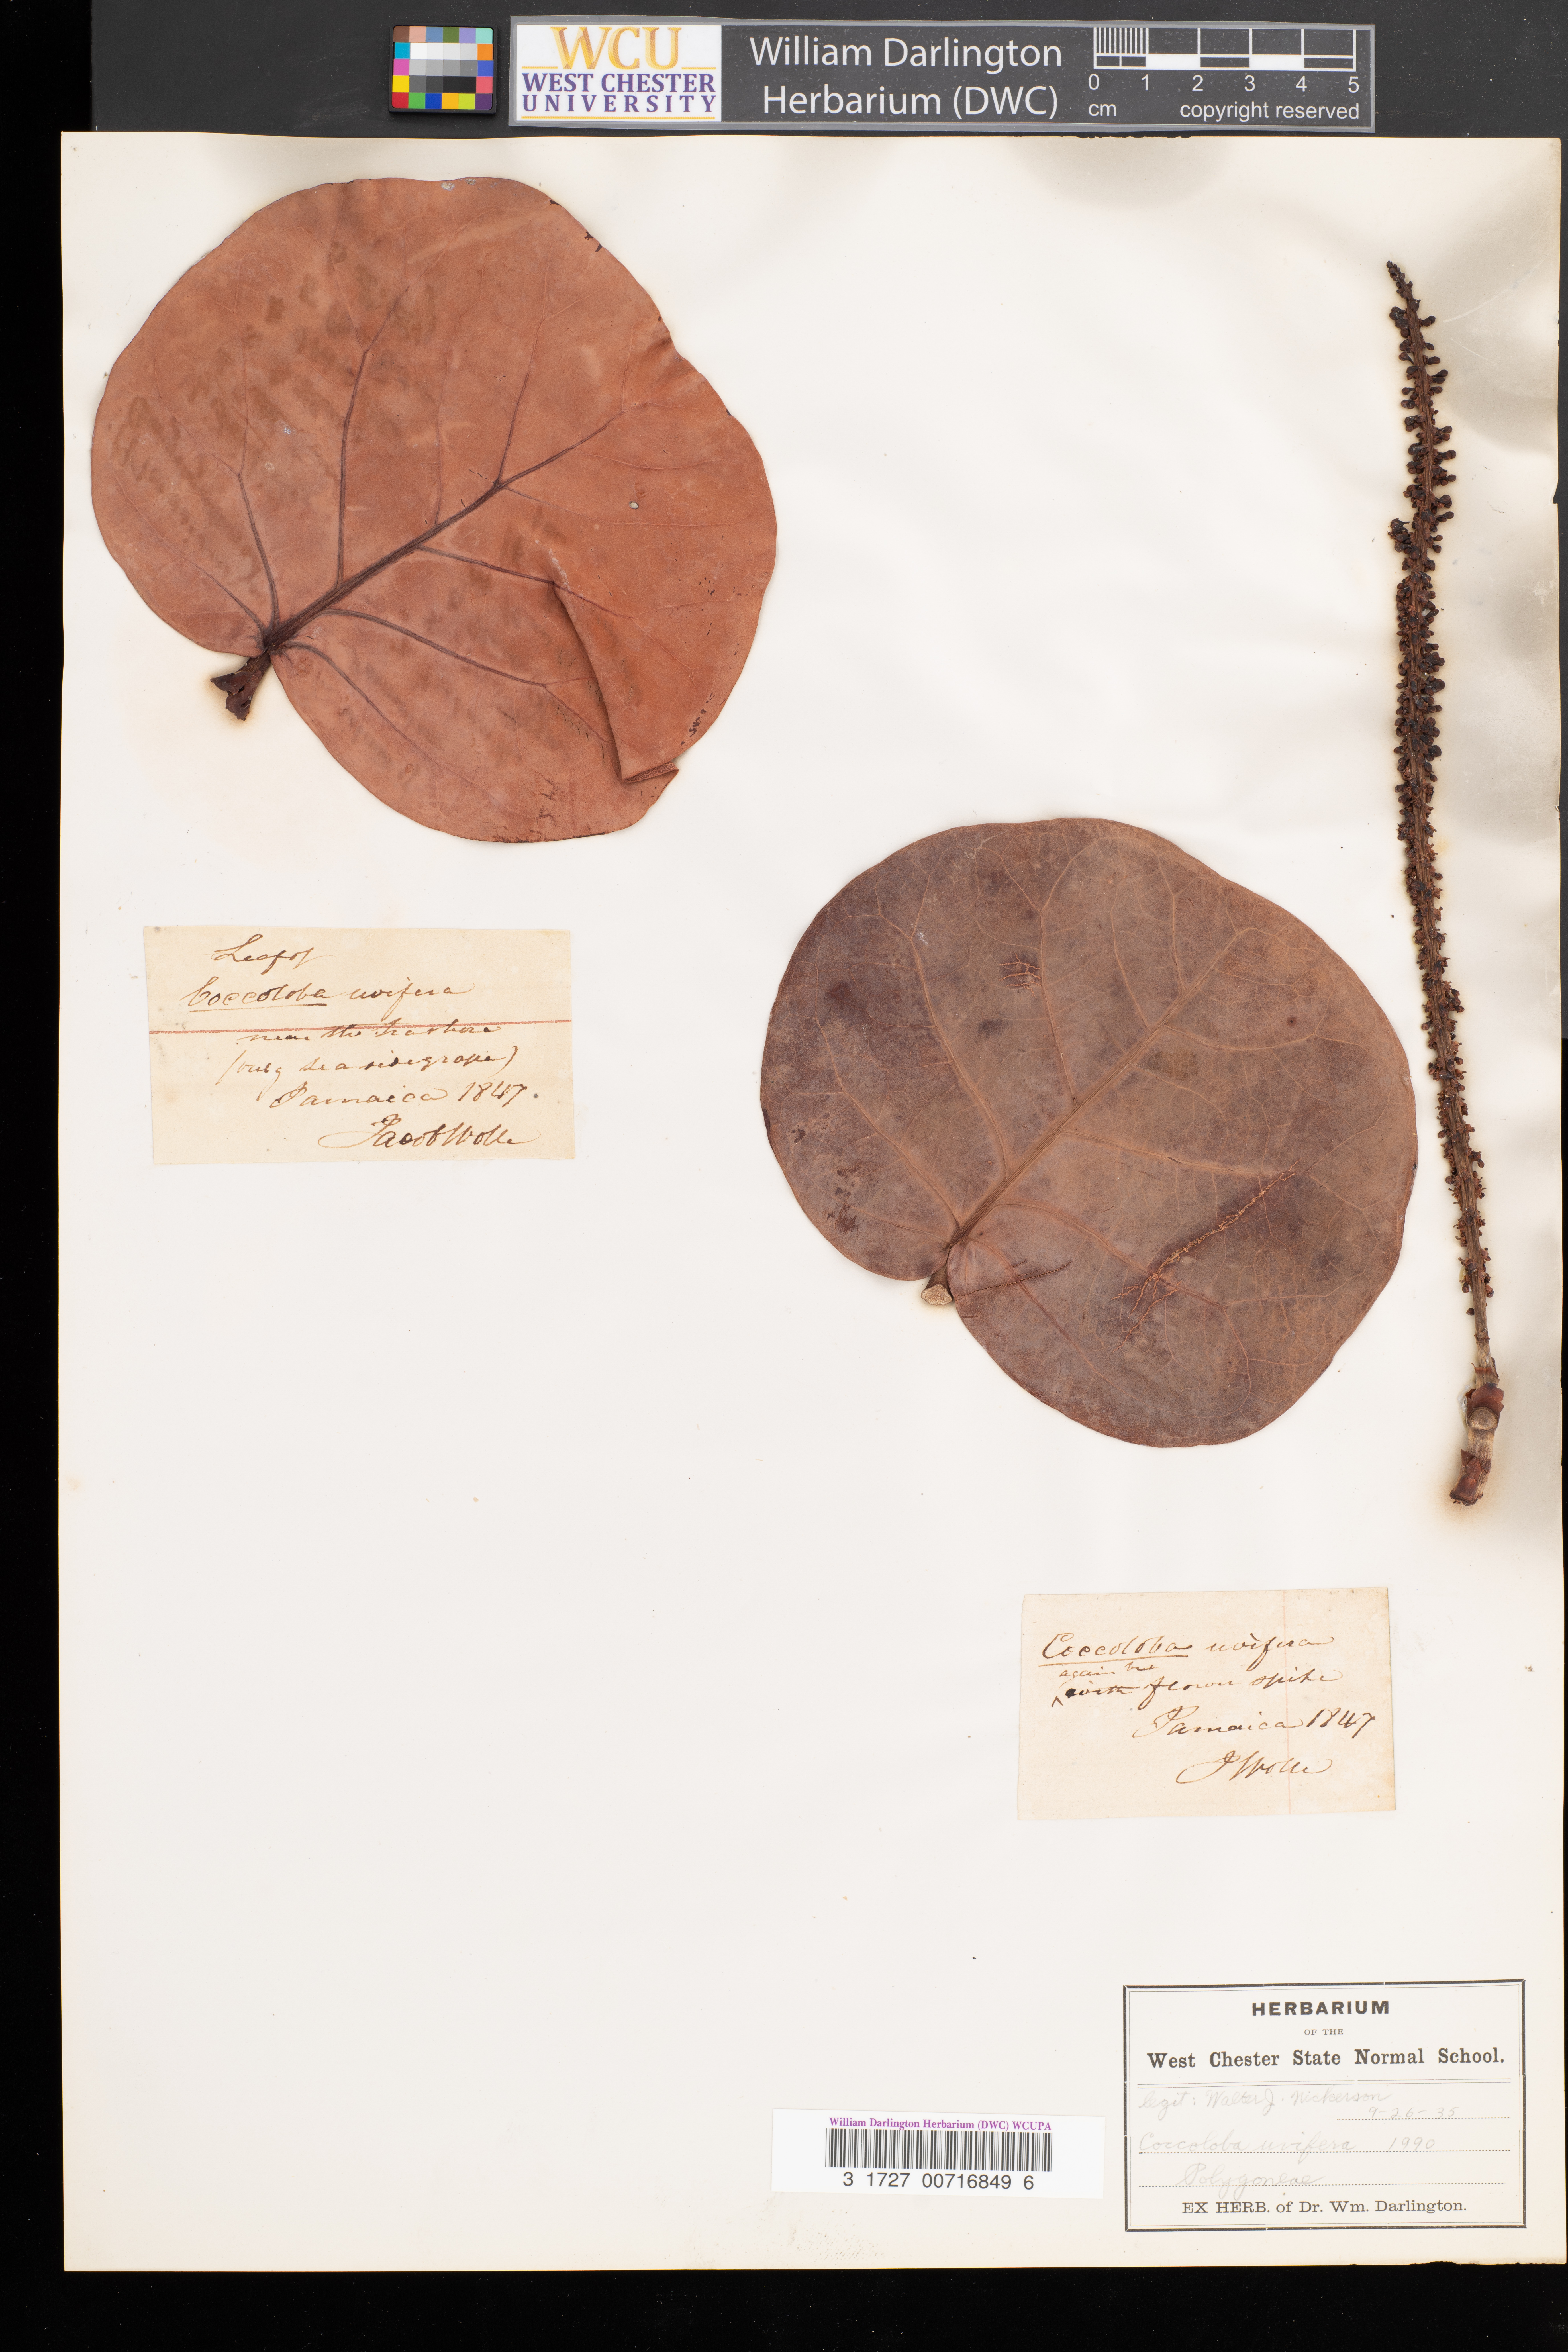 WCU
WEST CHESTER
UNIVERSITY
William Darlington
Herbarium (DWC)
0 1 2 3 4 5
cm copyright reserved
Leaf of
Coccoloba uvifera
near the sea shore
(vulg sea side grape)
Jamaica 1847.
Jacob Wolle
Coccoloba uvifera
again the
with flower spike
Jamaica 1847
J Wolle
HERBARIUM
OF THE
West Chester State Normal School.
legit: Walter J. Nickerson
9-26-35
Coccoloba uvifera 1990
Polygoneae
EX HERB. of Dr. Wm. Darlington.
William Darlington Herbarium (DWC) WCUPA
3 1727 00716849 6